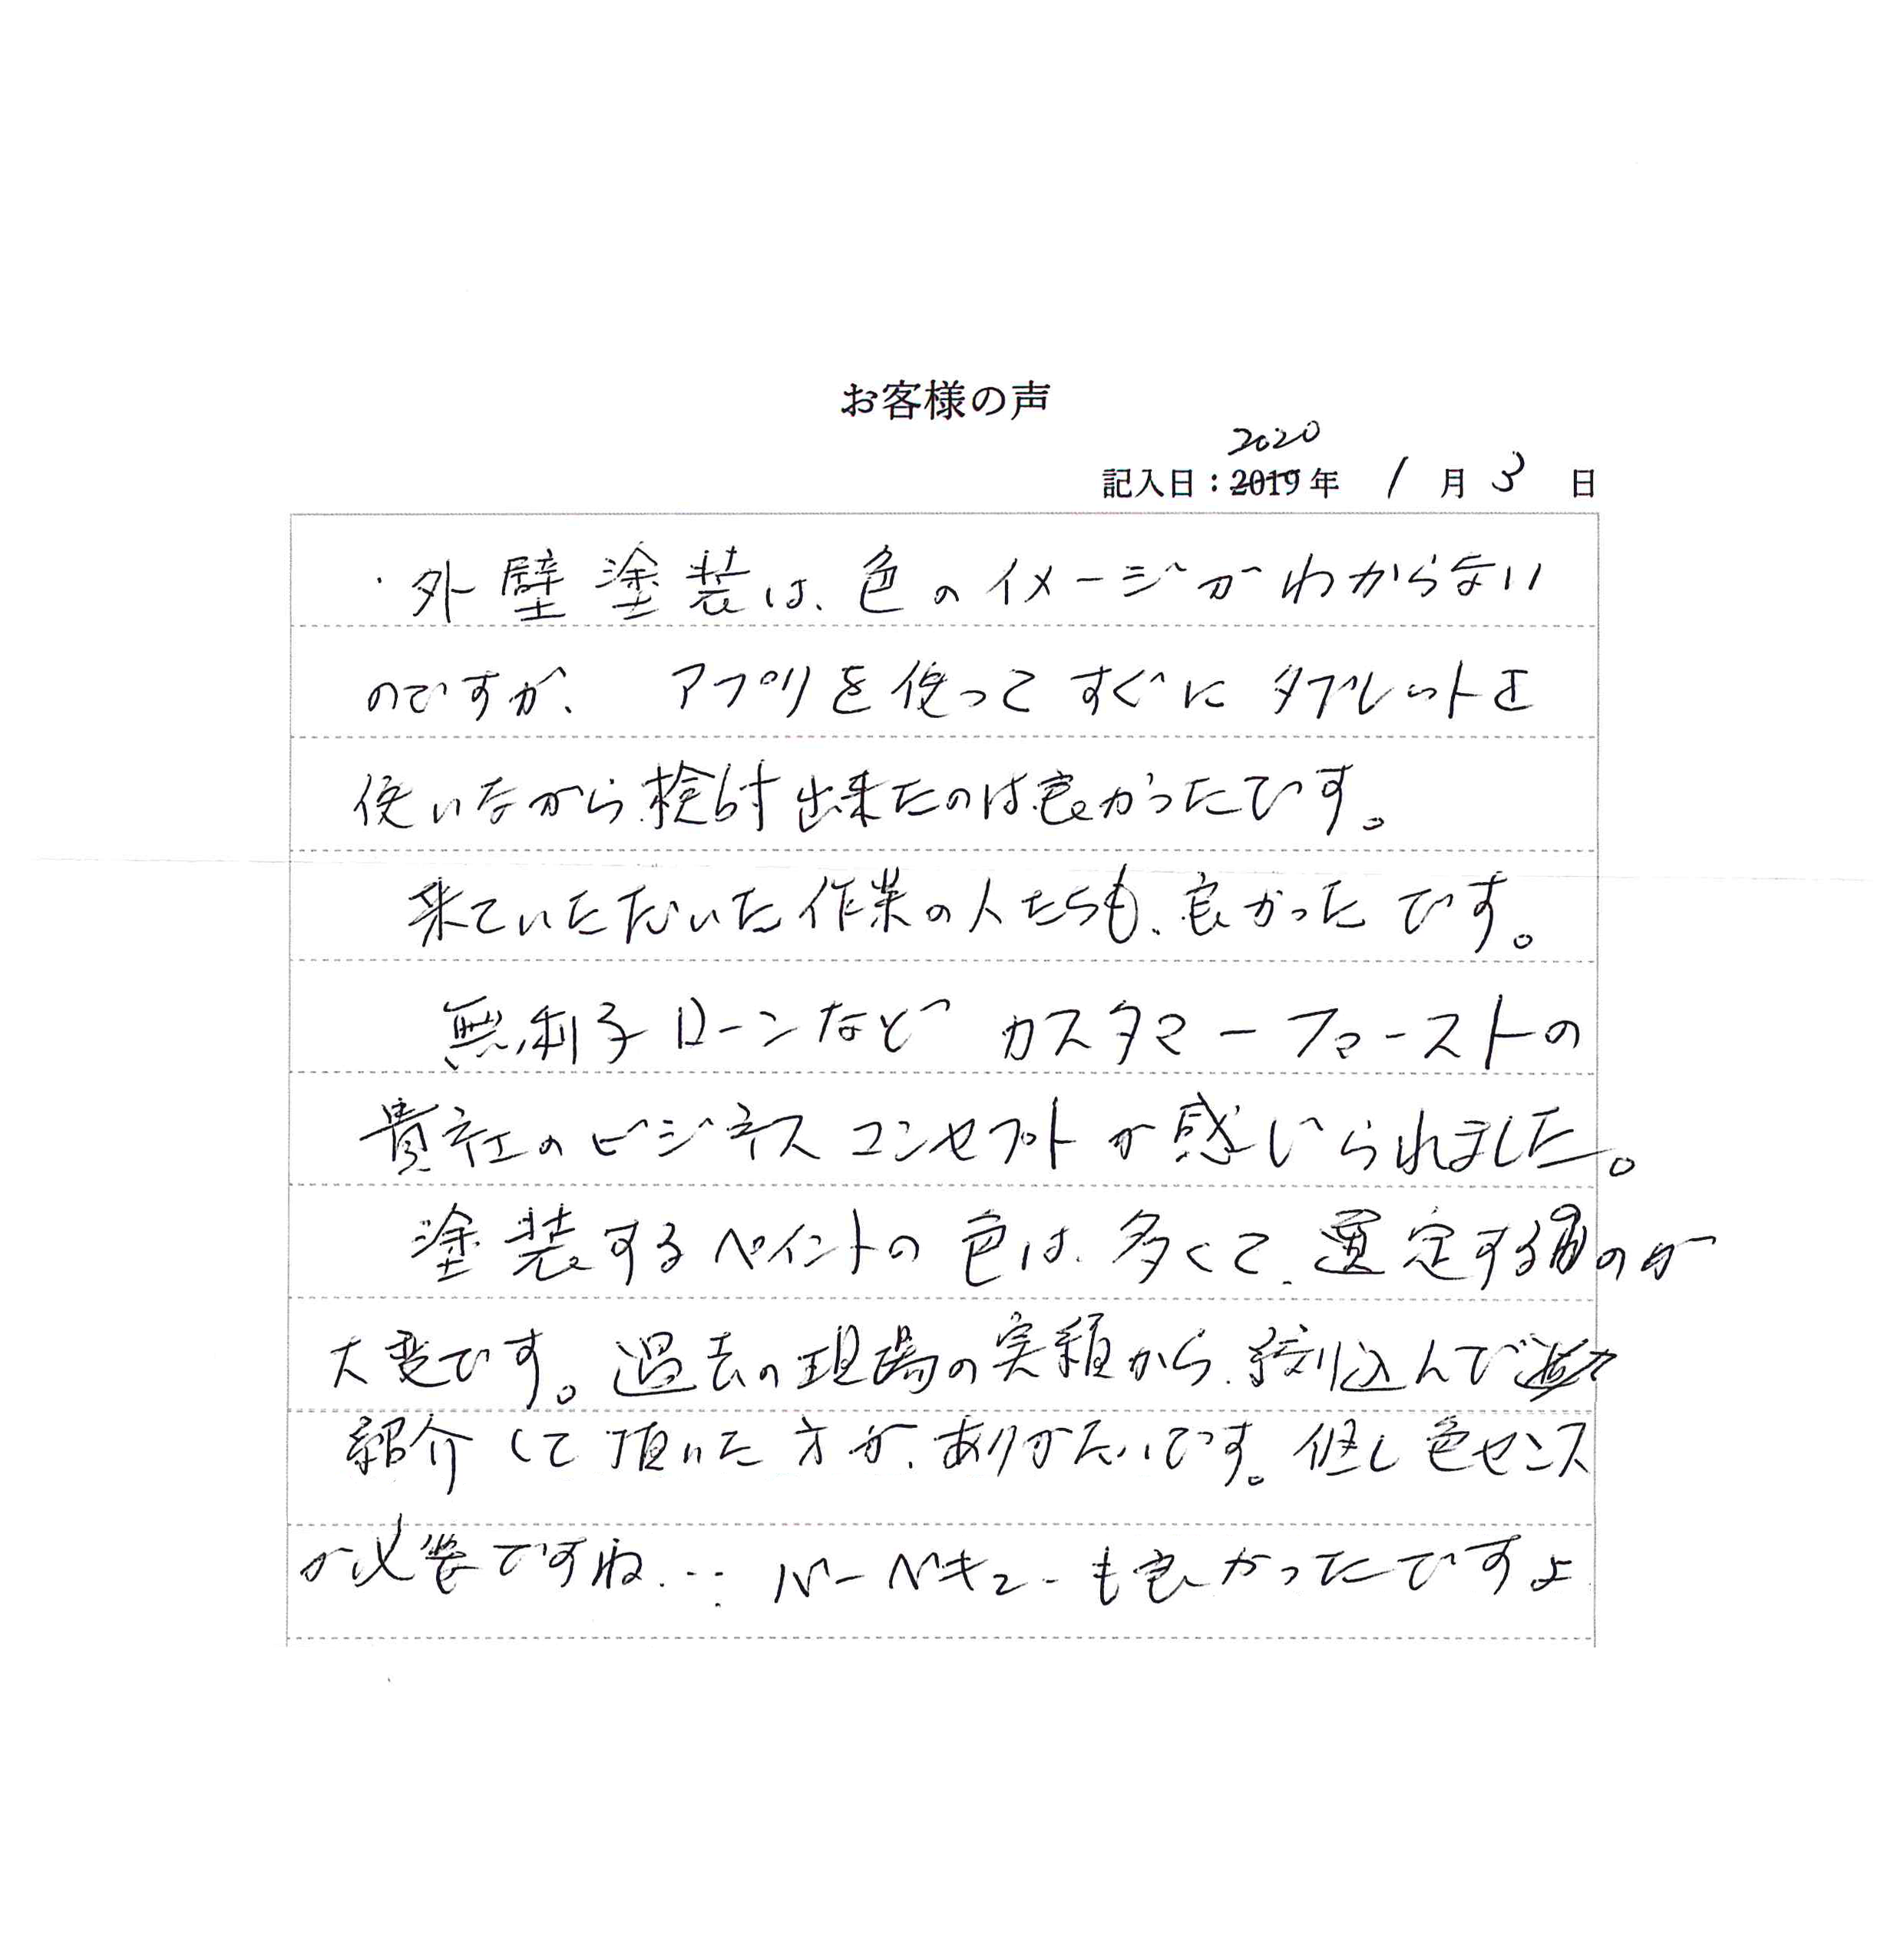 お客様の声
2020
記入日：2019年 1月3日
・外壁塗装は、色のイメージがわからない
のですが、 アプリを使ってすぐにタブレットを
使いながら検討出来たのは良かったです。
来ていただいた作業の人たちも、良かったです。
無利子ローンなど カスタマーファーストの
貴社のビジネスコンセプトが感じられました。
塗装するペイントの色は、多くて、選定するのが
大変です。過去の現場の実績から、絞り込んで
紹介して頂いた方が、ありがたいです。但し色センス
が必要ですね… バーベキューも良かったですよ